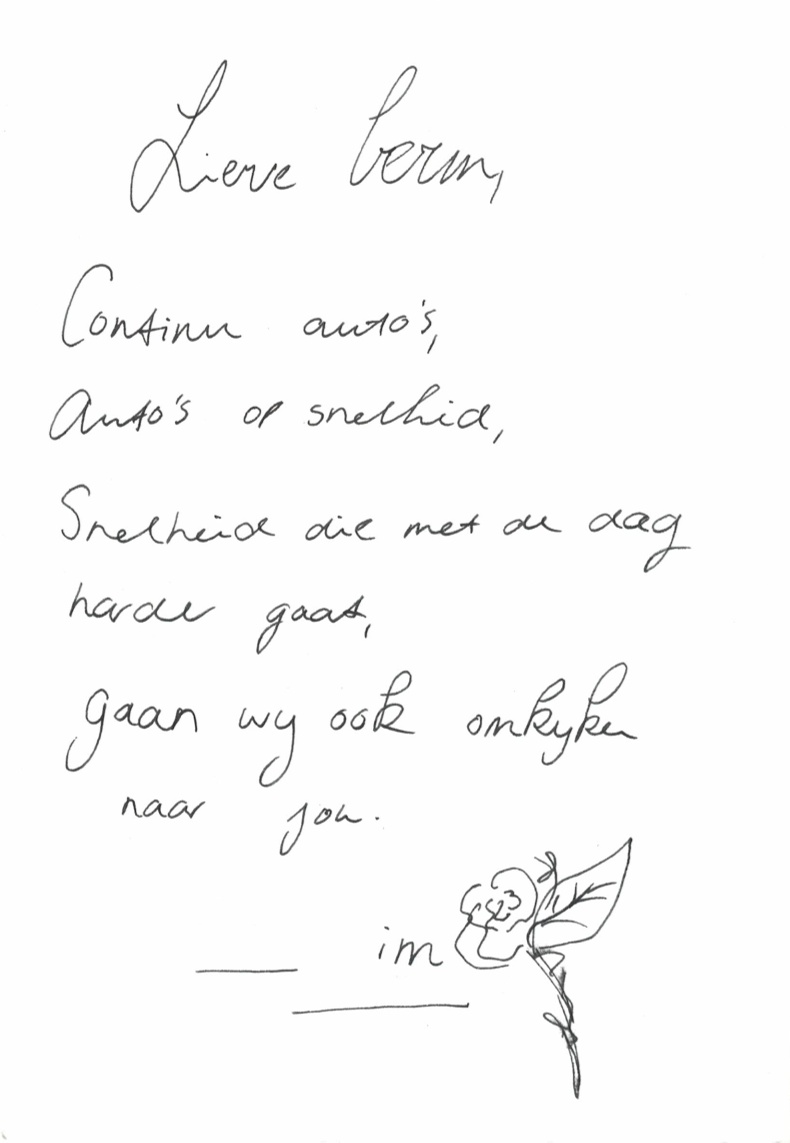 Lieve berm,
Continu auto's,
Auto's op snelheid,
Snelheid die met de dag
harder gaat,
gaan wij ook omkijken
naar jou.
im